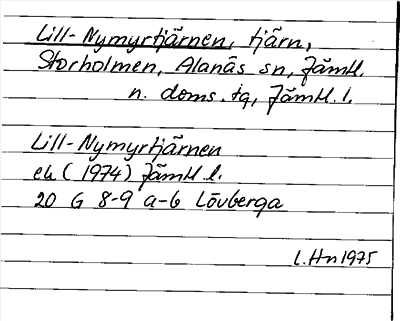 Lill-Nymyrtjärnen, tjärn,
Storholmen, Alanäs sn, Jämtl.
n. doms. tg, Jämtl. l.
Lill-Nymyrtjärnen
ek (1974) Jämtl l.
20 G 8-9 a-b Lövberga
L.Hn 1975